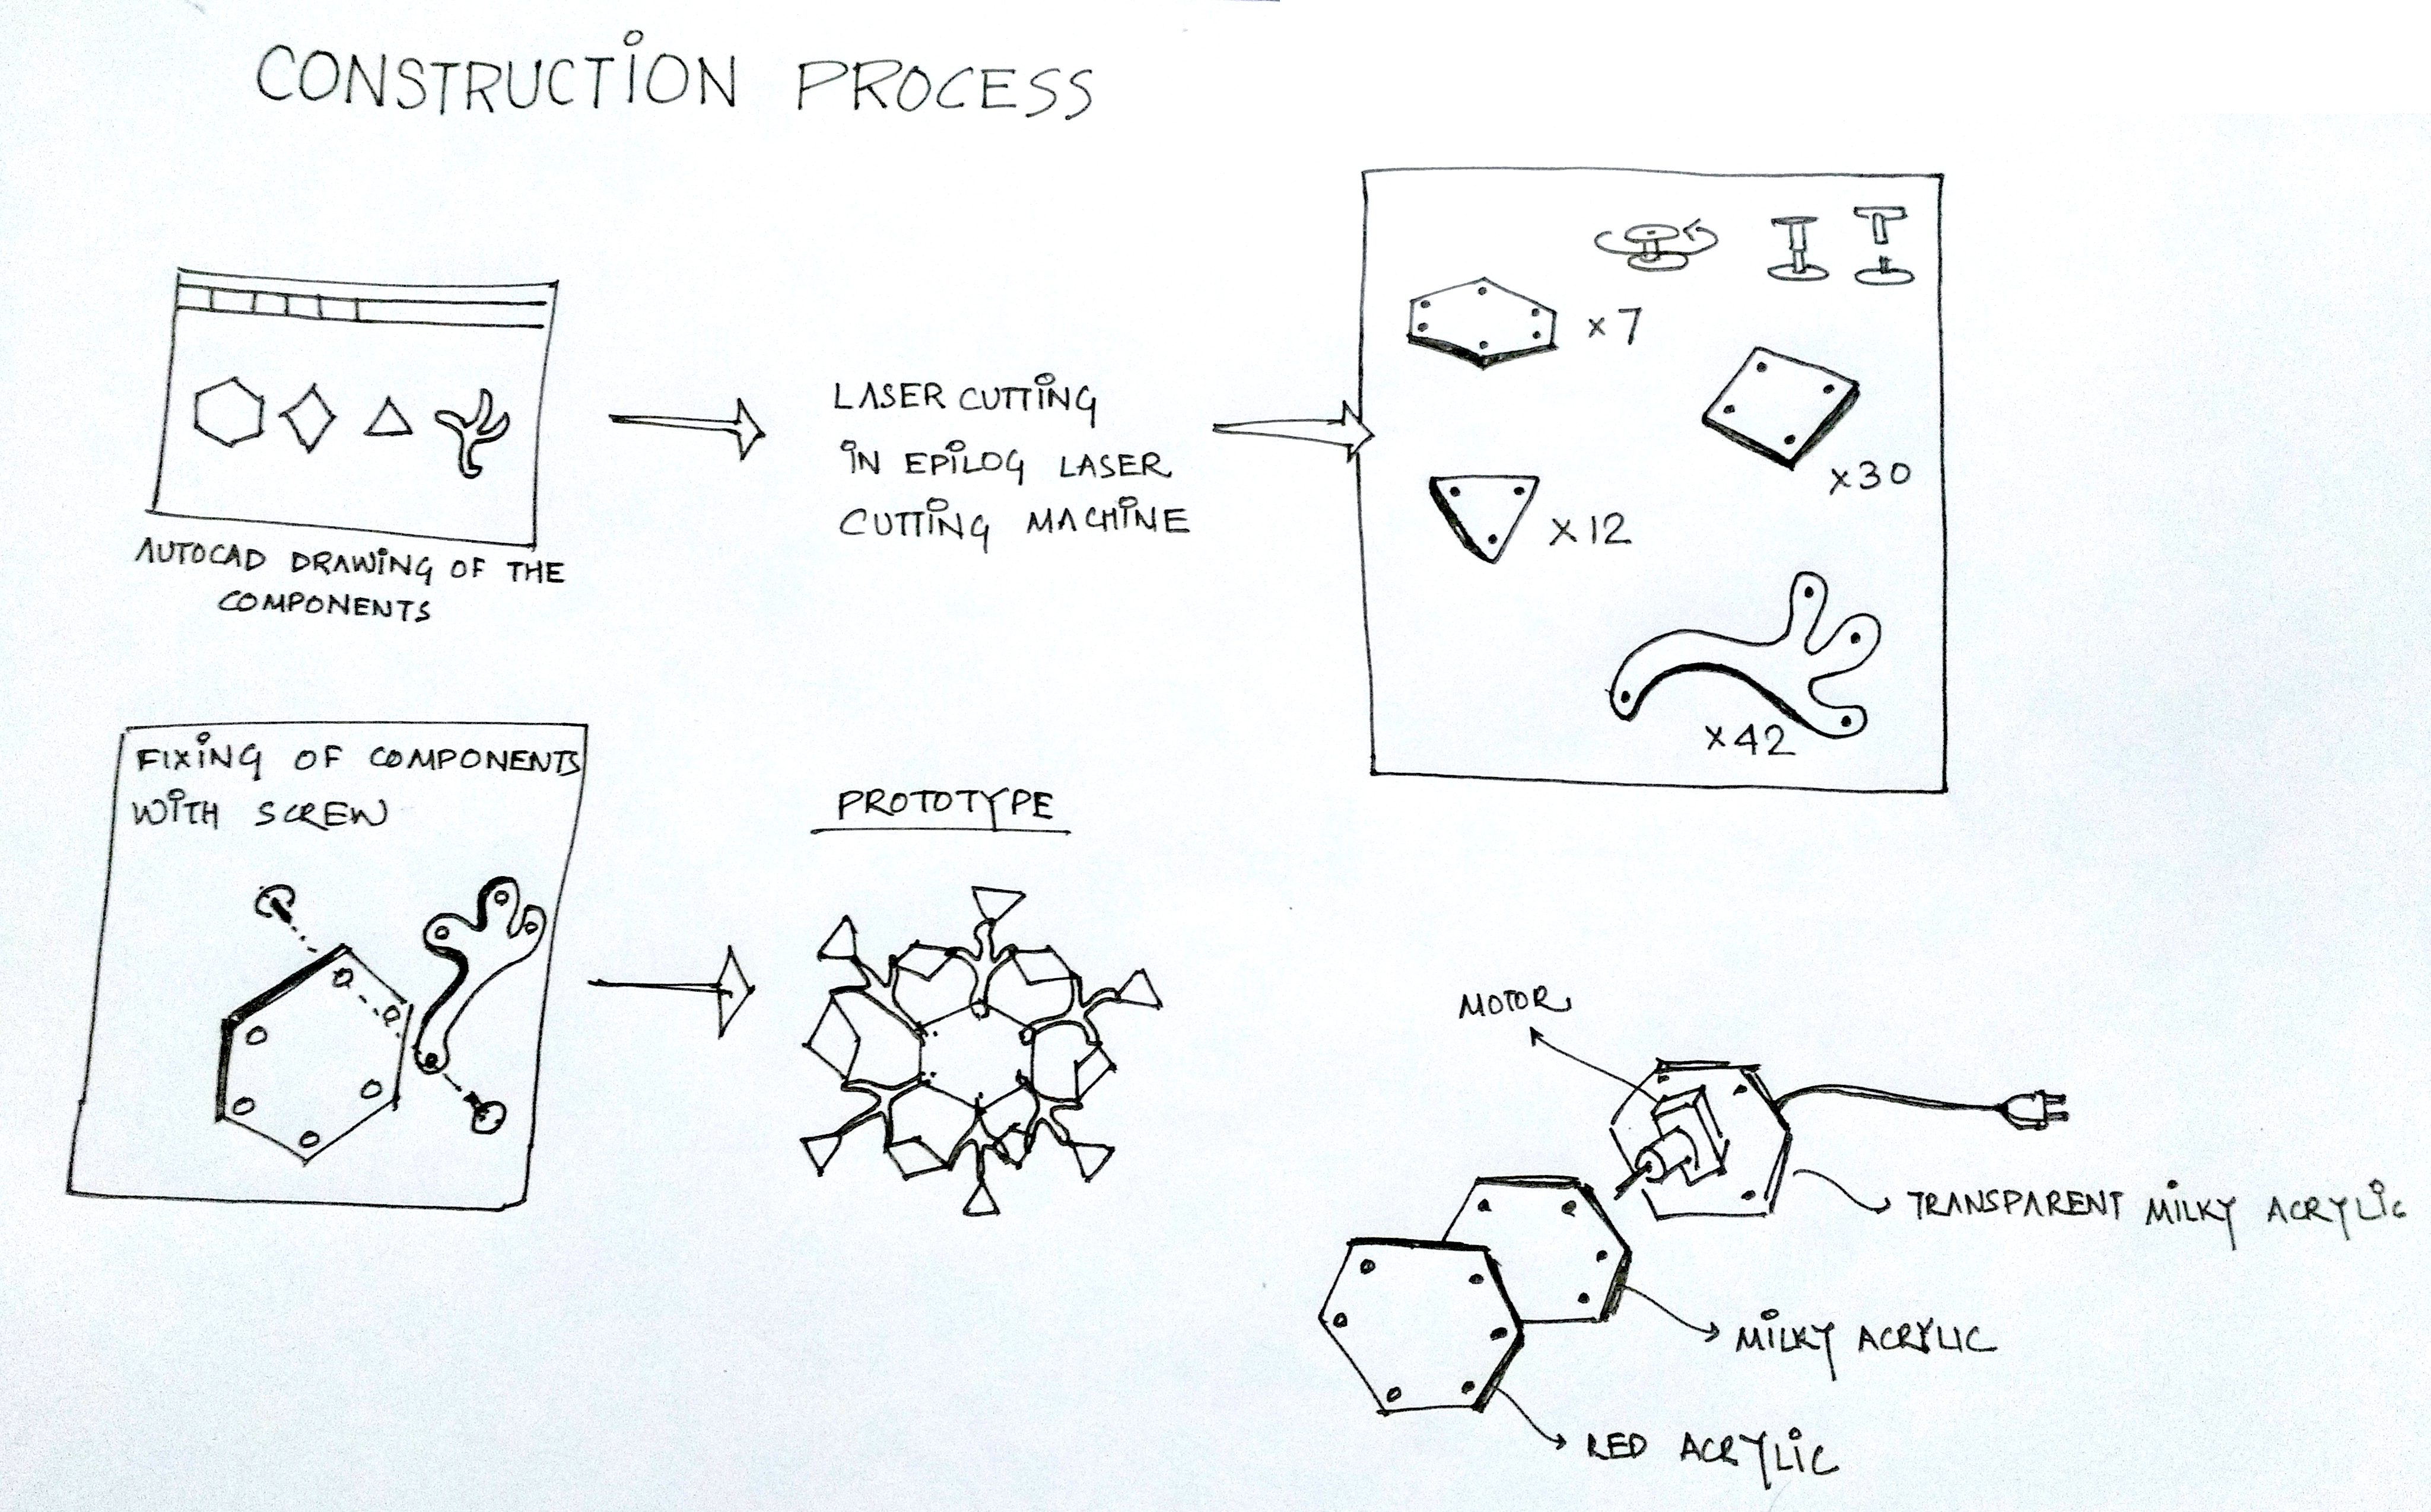 CONSTRUCTION PROCESS
AUTOCAD DRAWING OF THE
COMPONENTS
LASER CUTTING
IN EPILOG LASER
CUTTING MACHINE
x7
x30
x12
x42
FIXING OF COMPONENTS
WITH SCREW
PROTOTYPE
MOTOR
TRANSPARENT MILKY ACRYLIC
MILKY ACRYLIC
RED ACRYLIC